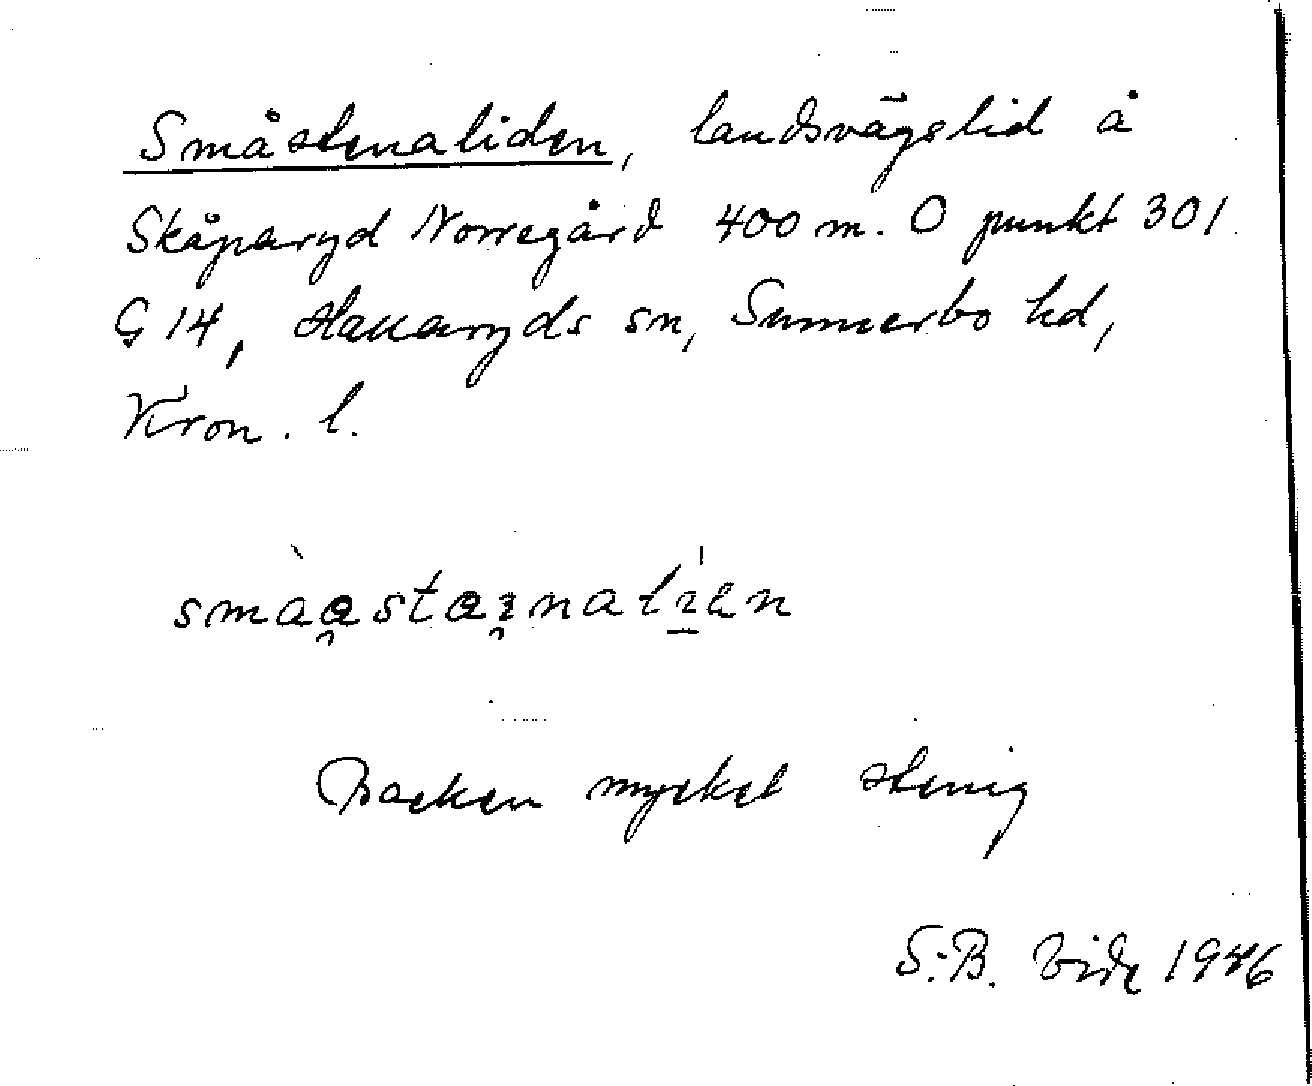 Småstenaliden, landsvägslid å
Skåparyd Norregård 400 m. O punkt 301.
G 14, Hallaryds sn, Sunnerbo hd,
Kron. l.
Backen mycket stenig
S. B. Vide 1946